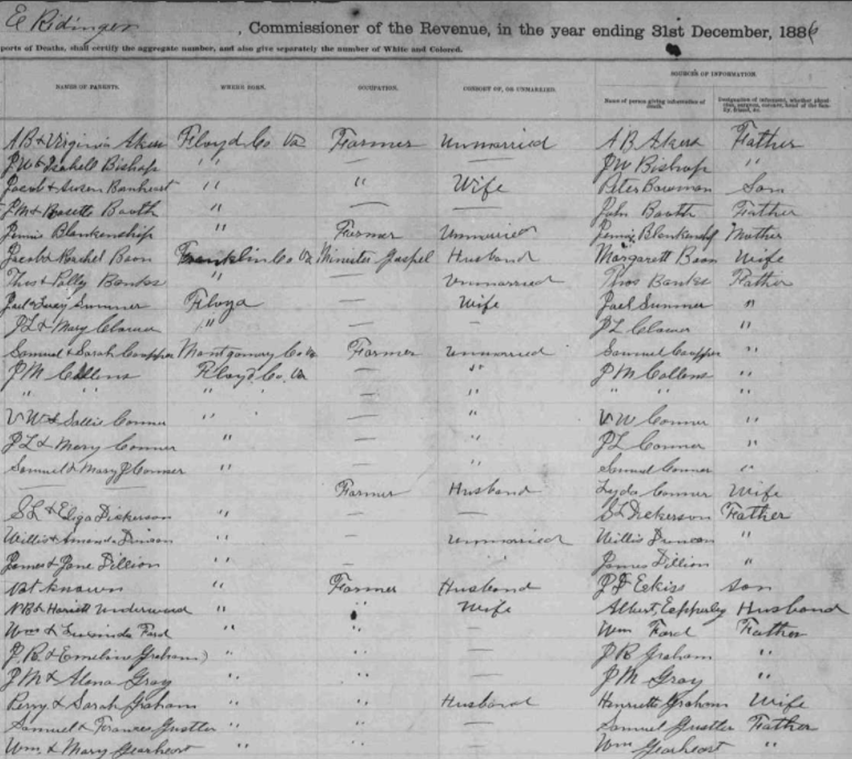 E Ridinger, Commissioner of the Revenue, in the year ending 31st December, 1886
ports of Deaths, shall certify the aggregate number, and also give separately the number of White and Colored.
SOURCES OF INFORMATION.
NAMES OF PARENTS. WHERE BORN. OCCUPATION. CONSORT OF, OR UNMARRIED. Name of person giving information of death. Designation of informant, whether physician, surgeon, coroner, head of the family, friend, &c.
A B & Virginia Akers Floyd Co Va Farmer Unmarried A B Akers Father
J W & Isabell Bishop " — — J W Bishop "
Jacob & Susan " " Wife Peter Bowman Son
J M & Rosetta Booth " — — John Booth Father
Blankenship " Farmer Unmarried Blankenship Mother
Jacob & Rachel Boon Franklin Co Va Minister Gospel Husband Margarett Boon Wife
Thos & Polly Banks " — Unmarried Thos Banks Father
Joel & Lucy Sumner Floyd — Wife Joel Sumner "
J L & Mary Clower " — — J L Clower "
Samuel & Sarah Montgomery Co Va Farmer Unmarried Samuel "
J M Collens Floyd Co. Va — " J M Collens "
" " " — " " " "
V W & Sallie Conner " — " V W Conner "
J L & Mary Conner " — " J L Conner "
Samuel & Mary J Conner " — " Samuel Conner "
— Farmer Husband Lyda Conner Wife
S L & Eliza Dickerson " — — S L Dickerson Father
Willis & Amanda Duncan " — Unmarried Willis Duncan "
James & Jane Dillion " — " James Dillion "
Not known " Farmer Husband J D Eckiss Son
N B & Hariett Underwood " " Wife Albert Epperley Husband
Wm & Lucinda Ford " " — Wm Ford Father
J. B. & Emeline Graham " " — J B Graham "
J M & Alena Gray " " — J M Gray "
Perry & Sarah Graham " " Husband Henrietta Graham Wife
Samuel & Frances Gustler " " — Samuel Gustler Father
Wm. & Mary Gearheart " " — Wm Gearheart "